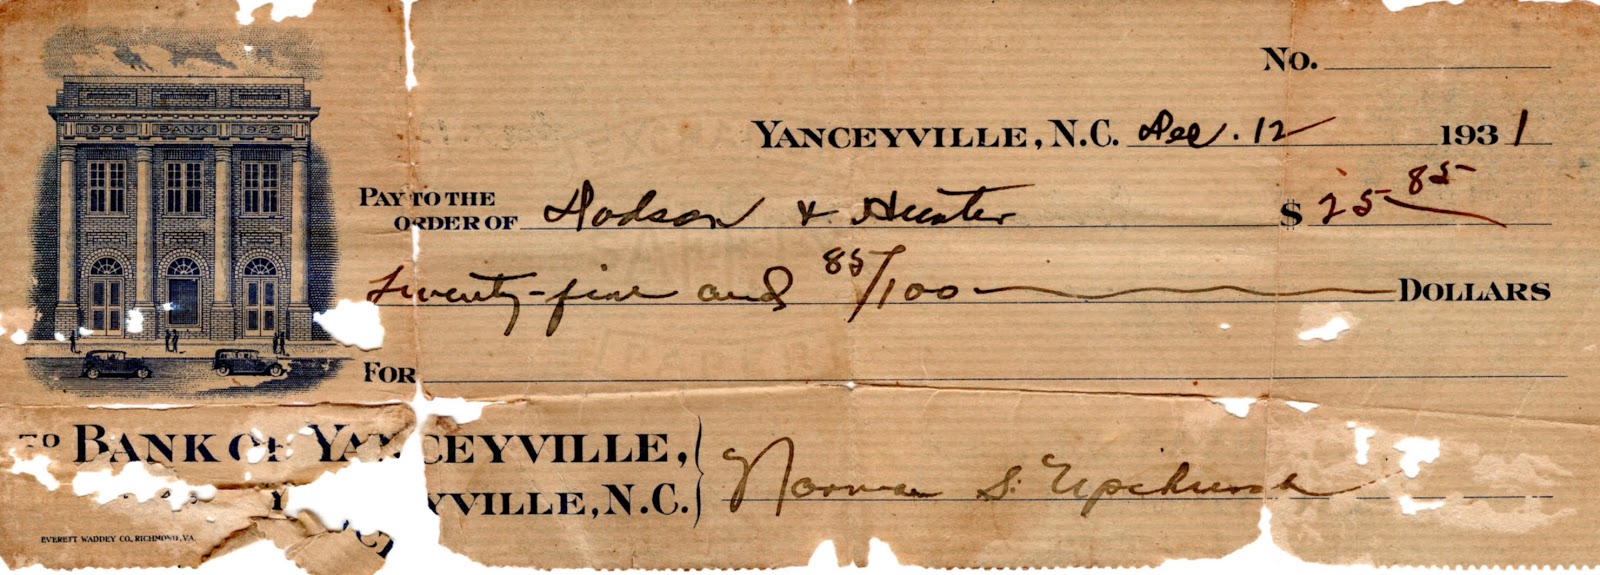 No.
1906 BANK 1922
YANCEYVILLE, N.C. Dec. 12 1931
PAY TO THE
ORDER OF Dodson & Hunter $ 25 85
Twenty-five and 85/100 DOLLARS
FOR
TO BANK OF YANCEYVILLE,
YVILLE, N.C.
Norman S. Upchurch
EVERETT WADDEY CO., RICHMOND, VA.